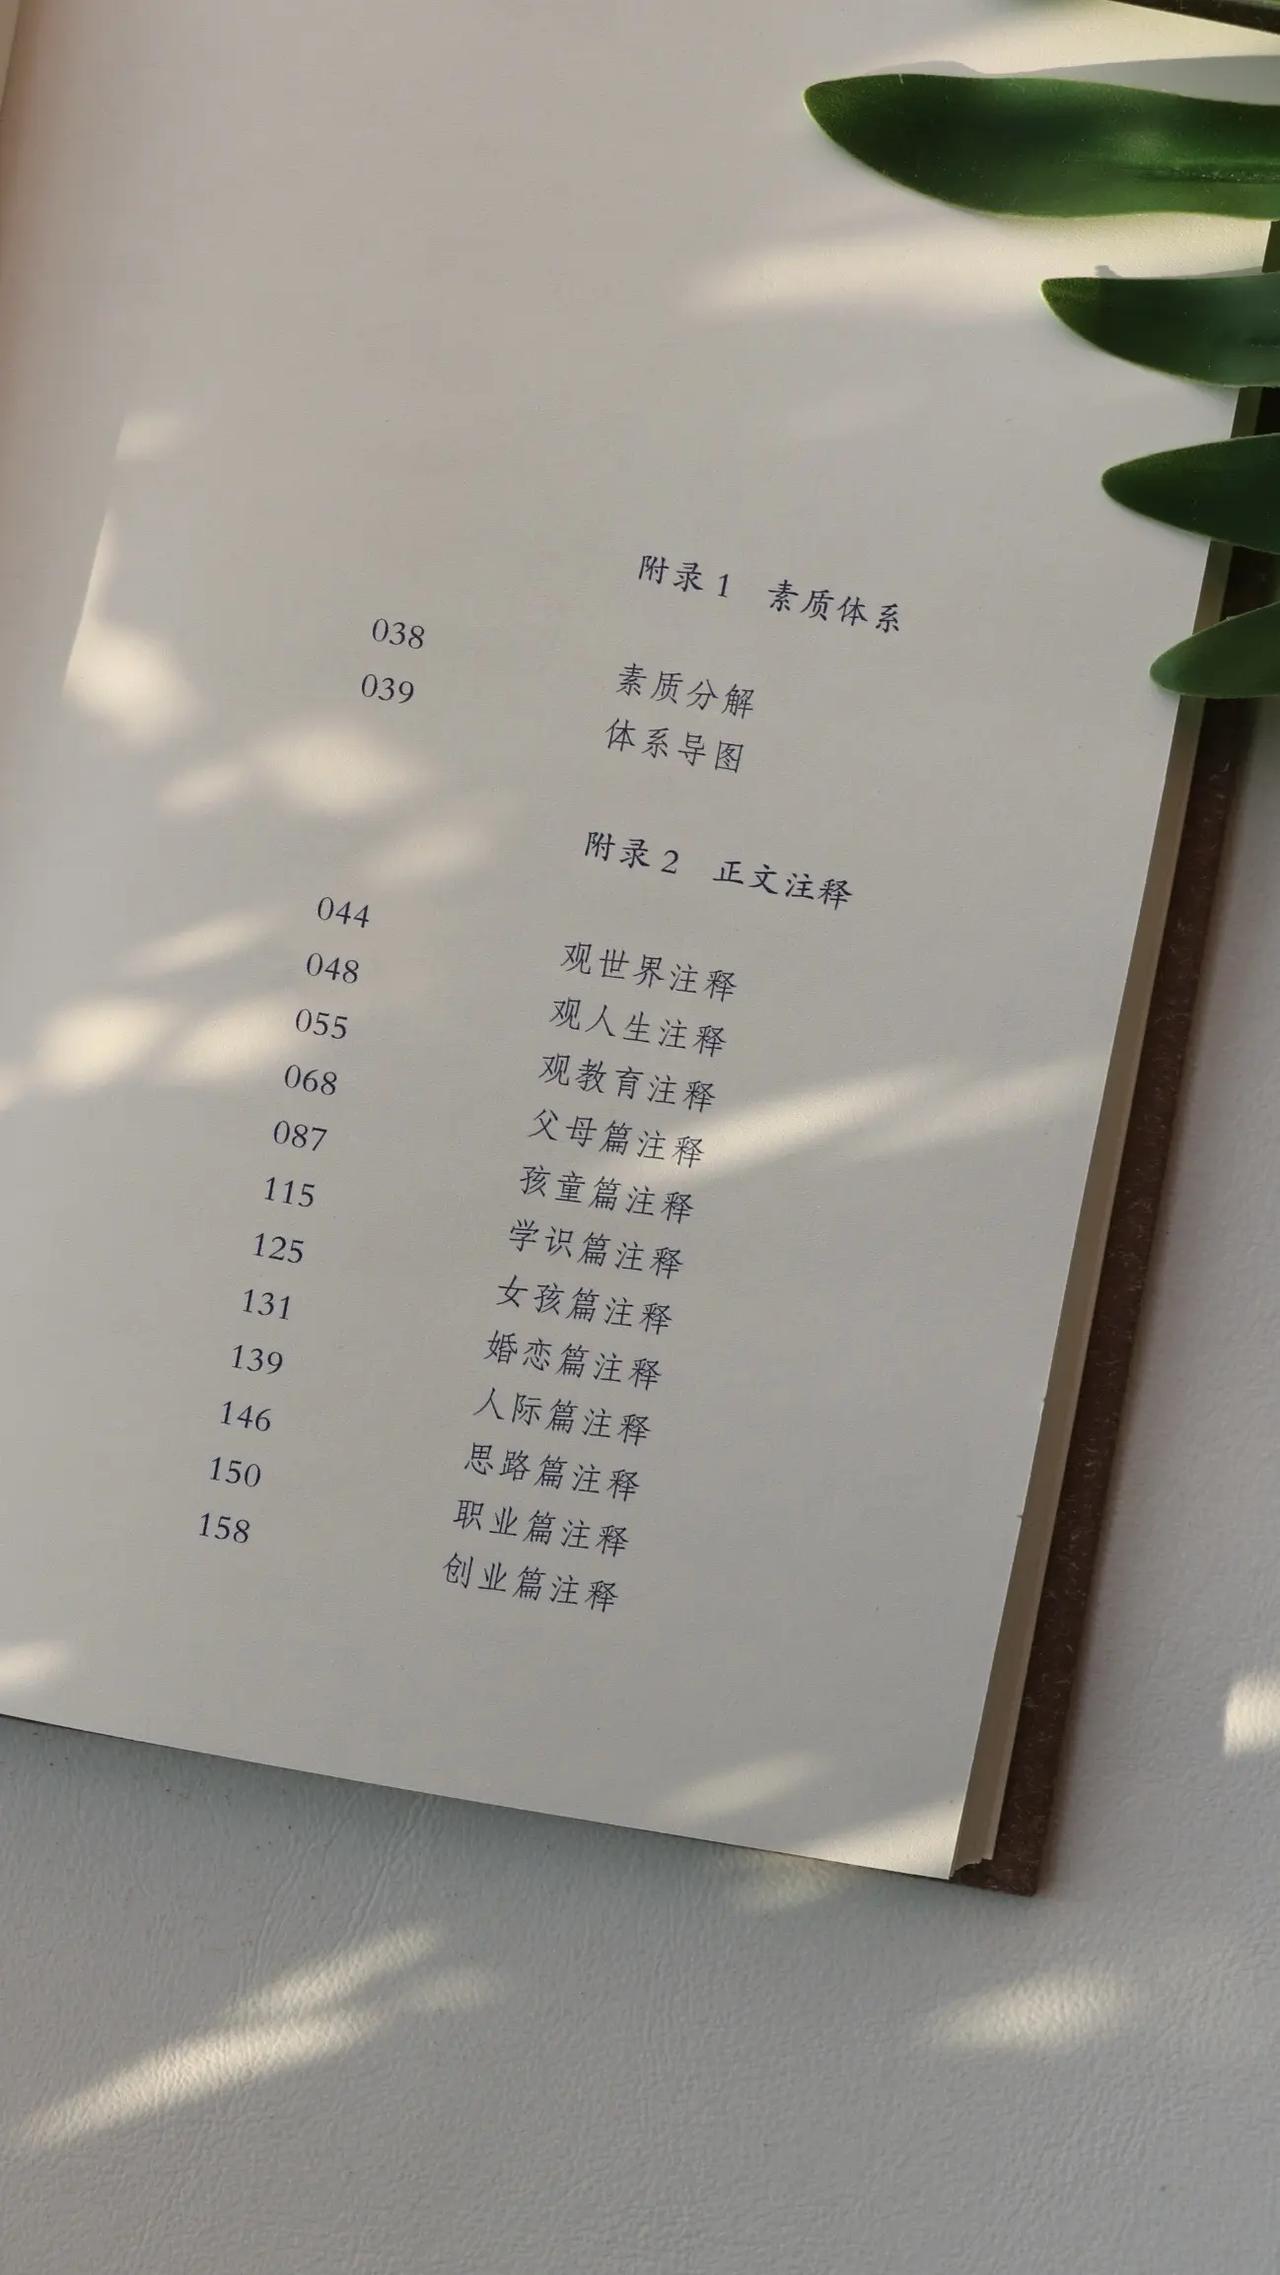 附录1 素质体系
038 素质分解
039 体系导图
附录2 正文注释
044 观世界注释
048 观人生注释
055 观教育注释
068 父母篇注释
087 孩童篇注释
115 学识篇注释
125 女孩篇注释
131 婚恋篇注释
139 人际篇注释
146 思路篇注释
150 职业篇注释
158 创业篇注释